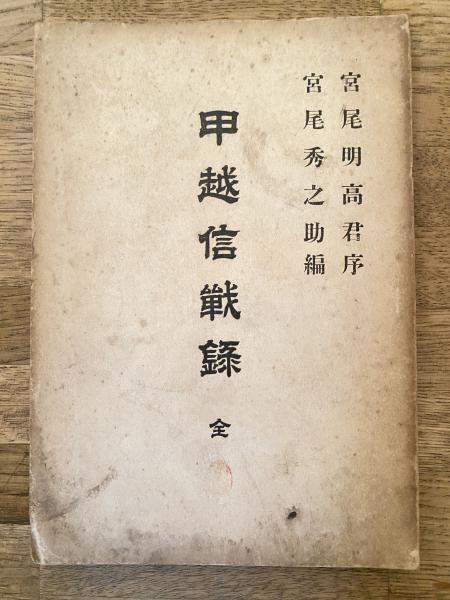 宮尾明高君序
宮尾秀之助編
甲越信戰錄
全